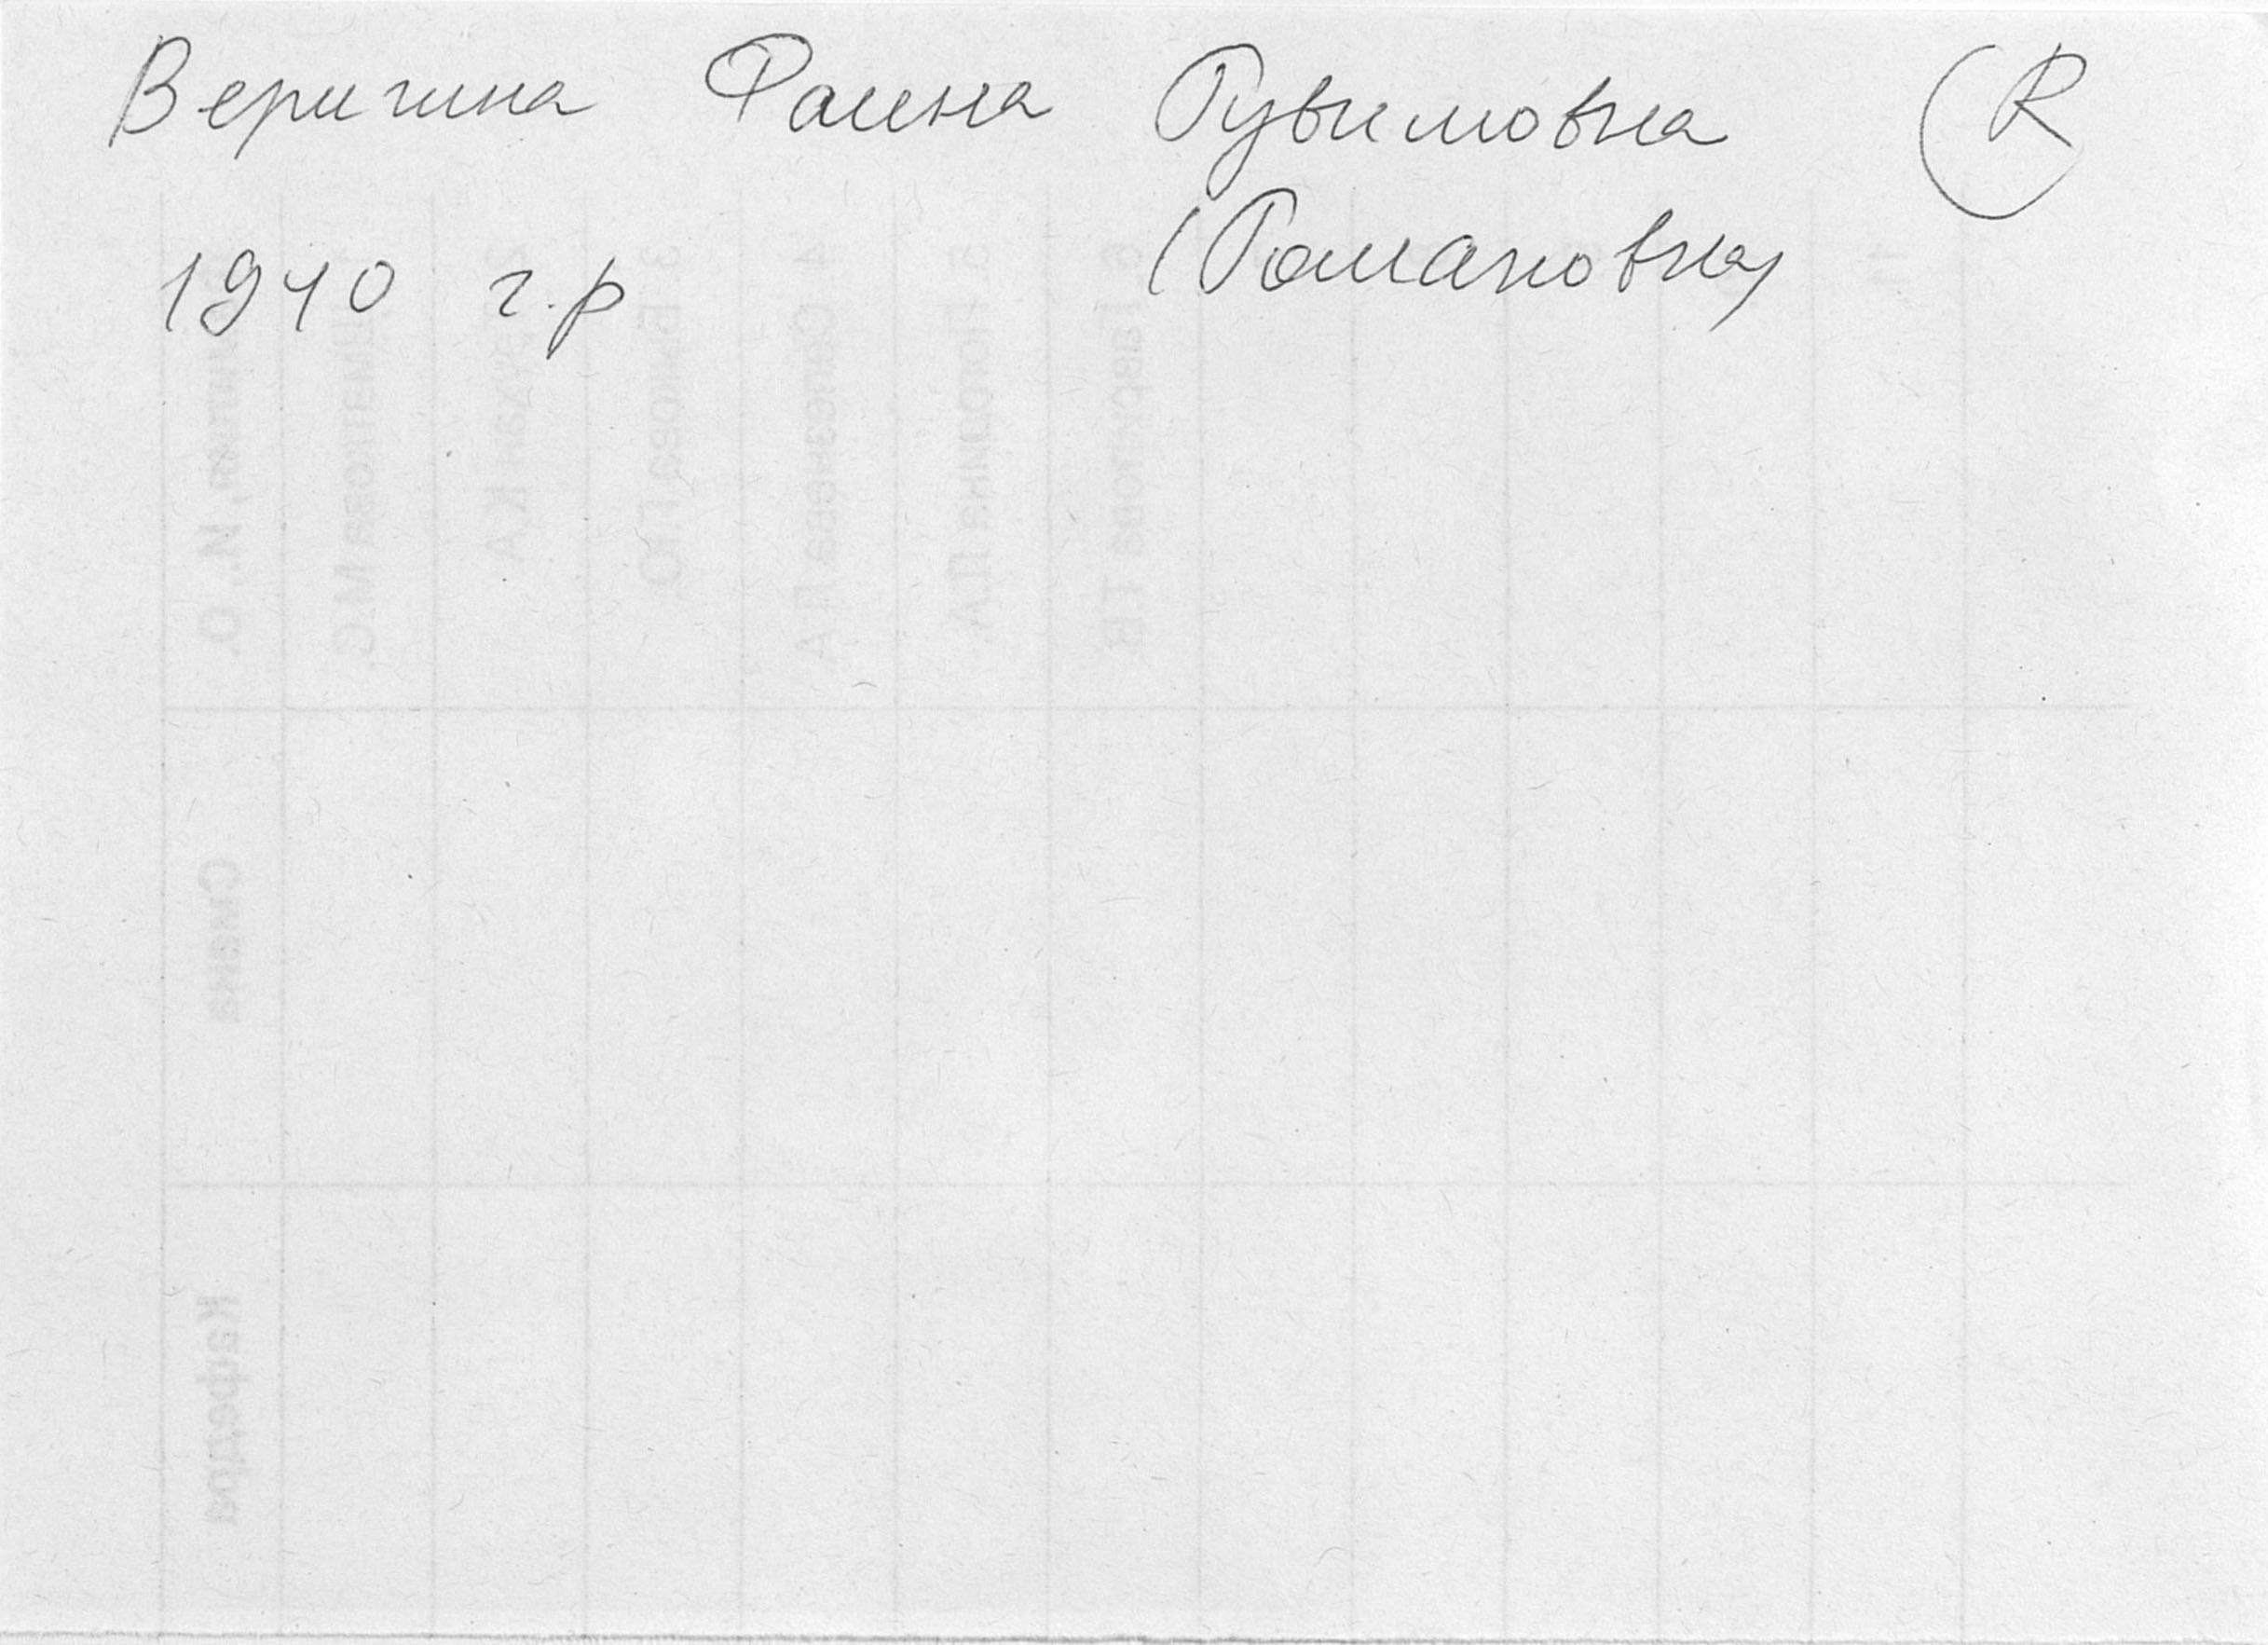 Веригина Фаина Рувимовна R
(Романовна)
1940 г.р